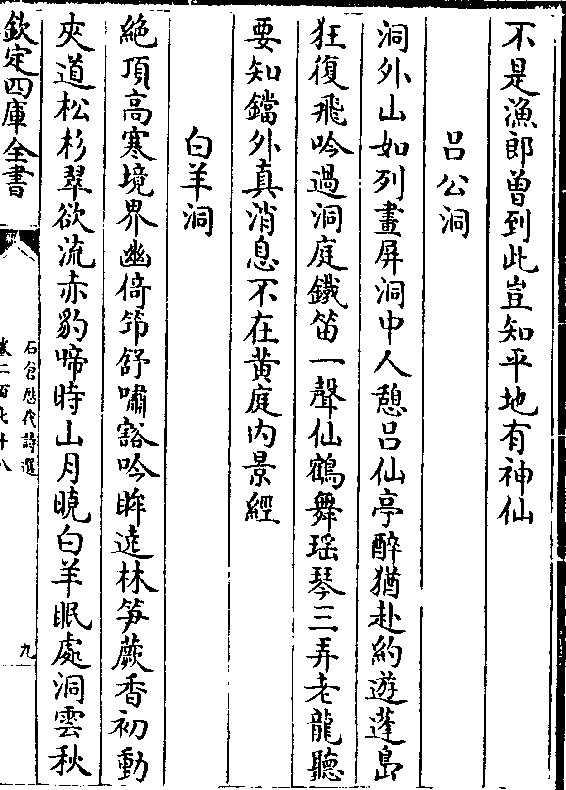 不是漁郎曽到此豈知平地有神仙
吕公洞
洞外山如列畫屏洞中人憩吕仙亭醉猶赴約遊蓬島
狂復飛吟過洞庭鐵笛一聲仙鶴舞瑶琴三弄老龍聽
要知鐺外真消息不在黄庭内景經
白羊洞
絶頂高寒境界幽倚笻舒嘯豁吟眸遶林笋蕨香初動
夾道松杉翠欲流赤豹啼時山月曉白羊眠處洞雲秋
欽定四庫全書
石倉歷代詩選
卷二百七十八
九